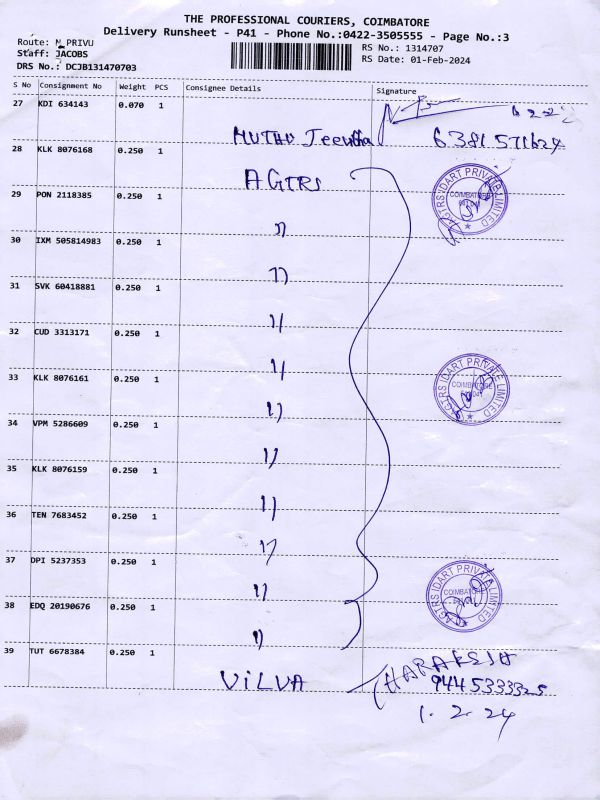 THE PROFESSIONAL COURIERS, COIMBATORE
Delivery Runsheet - P41 - Phone No.:0422-3505555 - Page No.:3
Route: N PRIVU
Staff: JACOBS
DRS No.: DCJB131470703
RS No.: 1314707
RS Date: 01-Feb-2024
S No Consignment No Weight PCS Consignee Details Signature
27 KDI 634143 0.070 1
MUTHU Jeewtha 6381571624
28 KLK 8076168 0.250 1
AGTRS
29 PON 2118385 0.250 1
11
30 IXM 505814983 0.250 1
11
31 SVK 60418881 0.250 1
11
32 CUD 3313171 0.250 1
11
33 KLK 8076161 0.250 1
11
34 VPM 5286609 0.250 1
11
35 KLK 8076159 0.250 1
11
36 TEN 7683452 0.250 1
11
37 DPI 5237353 0.250 1
11
38 EDQ 20190676 0.250 1
11
39 TUT 6678384 0.250 1
VILVA
9445333325
1.2.24
AGTRS IDART PRIVATE LIMITED
COIMBATORE
AGTRS IDART PRIVATE LIMITED
COIMBATORE
AGTRS IDART PRIVATE LIMITED
COIMBATORE